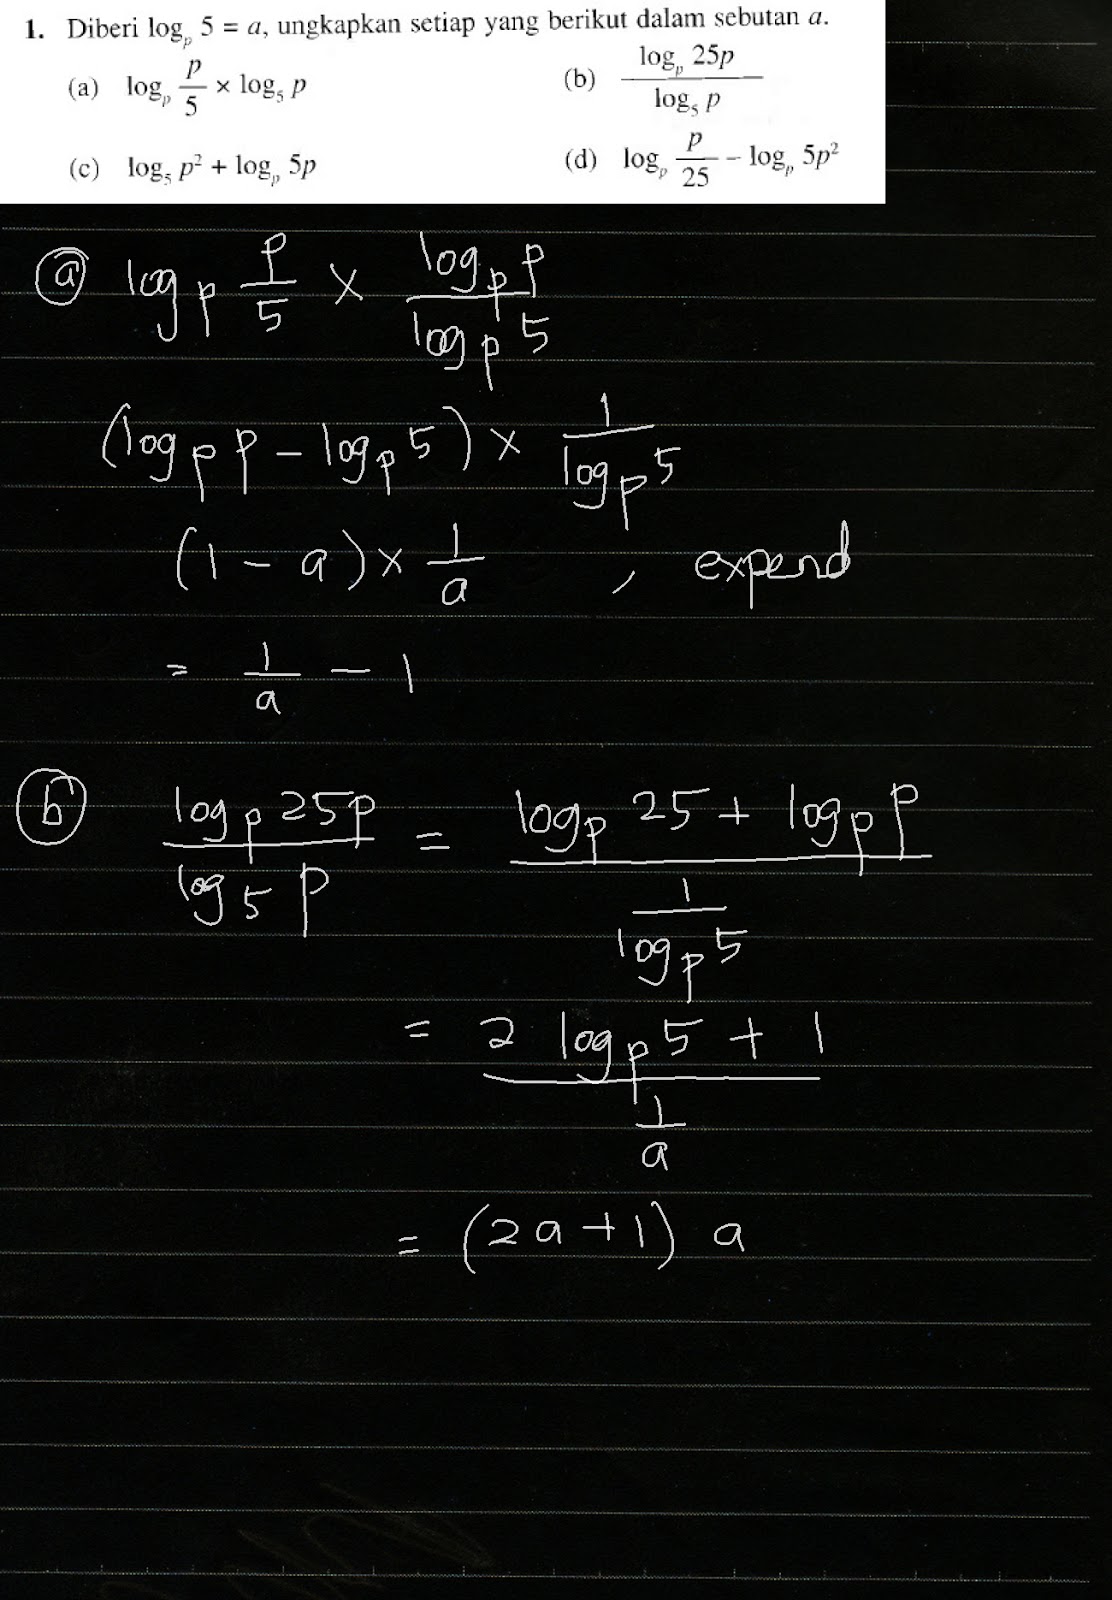 1. Diberi logₚ 5 = a, ungkapkan setiap yang berikut dalam sebutan a.
(a) logₚ p/5 × log₅ p
(b) logₚ 25p / log₅ p
(c) log₅ p² + logₚ 5p
(d) logₚ p/25 − logₚ 5p²
(a) logₚ p/5 × logₚ p / logₚ 5
(logₚ p − logₚ 5) × 1/logₚ 5
(1 − a) × 1/a , expend
= 1/a − 1
(b) logₚ 25p / log₅ p = (logₚ 25 + logₚ p) / (1/logₚ 5)
= (2 logₚ 5 + 1) / (1/a)
= (2a + 1) a